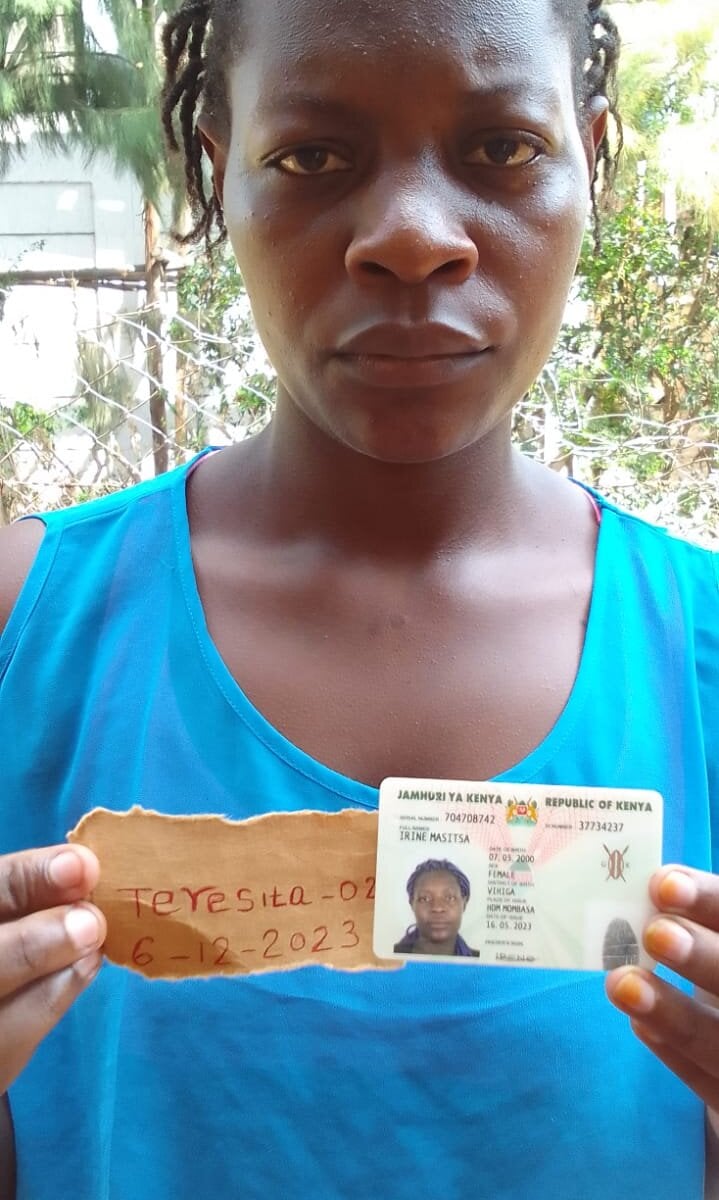 Teresita - 02
6 - 12 - 2023
JAMHURI YA KENYA REPUBLIC OF KENYA
SERIAL NUMBER 704708742 ID NUMBER 37734237
FULL NAMES
IRINE MASITSA
DATE OF BIRTH
07.03.2000
SEX
FEMALE
DISTRICT OF BIRTH
VIHIGA
PLACE OF ISSUE
HDM MOMBASA
DATE OF ISSUE
16.05.2023
HOLDER'S SIGN.